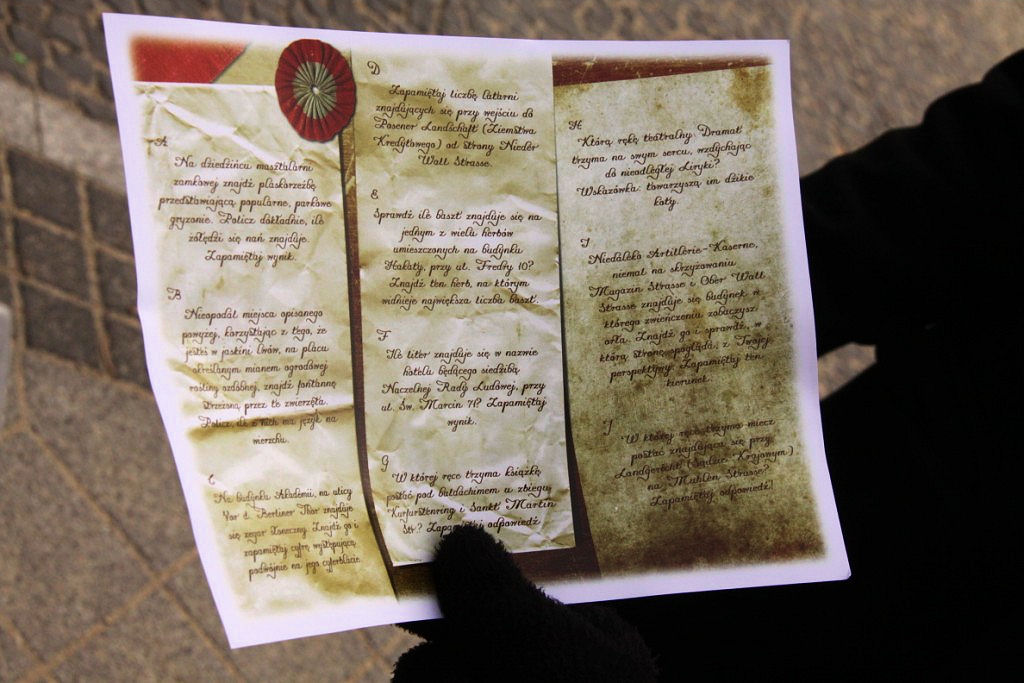 A
Na dziedzińcu masztalarni
zamkowej znajdź płaskorzeźbę
przedstawiającą popularne, parkowe
gryzonie. Policz dokładnie, ile
żołędzi się nań znajduje.
Zapamiętaj wynik.
B
Nieopodal miejsca opisanego
powyżej, korzystając z tego, że
jesteś w jaskini lwów, na placu
określanym mianem ogrodowej
rośliny ozdobnej, znajdź fontannę
strzeżoną przez te zwierzęta.
Policz, ile z nich ma język na
wierzchu.
C
Na budynku Akademii, na ulicy
Vor d. Berliner Thor znajduje
się zegar słoneczny. Znajdź go i
zapamiętaj cyfrę występującą
podwójnie na jego cyferblacie.
D
Zapamiętaj liczbę latarni
znajdujących się przy wejściu do
Posener Landschaft (Ziemstwa
Kredytowego) od strony Nieder
Wall Strasse.
E
Sprawdź ile baszt znajduje się na
jednym z wielu herbów
umieszczonych na budynku
Hakaty, przy ul. Fredry 10?
Znajdź ten herb, na którym
widnieje największa liczba baszt.
F
Ile liter znajduje się w nazwie
hotelu będącego siedzibą
Naczelnej Rady Ludowej, przy
ul. Św. Marcin 71? Zapamiętaj
wynik.
G
W której ręce trzyma książkę
postać pod baldachimem u zbiegu
Kurfurstenring i Sankt Martin
Str? Zapamiętaj odpowiedź.
H
Którą rękę teatralny Dramat
trzyma na swym sercu, wzdychając
do nieodległej Liryki?
Wskazówka: towarzyszą im dzikie
koty.
I
Niedaleko Artillerie-Kaserne,
niemal na skrzyżowaniu
Magazin Strasse i Ober Wall
Strasse znajduje się budynek w
którego zwieńczeniu zobaczysz
orła. Znajdź go i sprawdź, w
którą stronę spogląda, z Twojej
perspektywy. Zapamiętaj ten
kierunek.
J
W której ręce trzyma miecz
postać znajdująca się przy
Landgericht (Sądzie Krajowym)
na Muhlen Strasse?
Zapamiętaj odpowiedź!